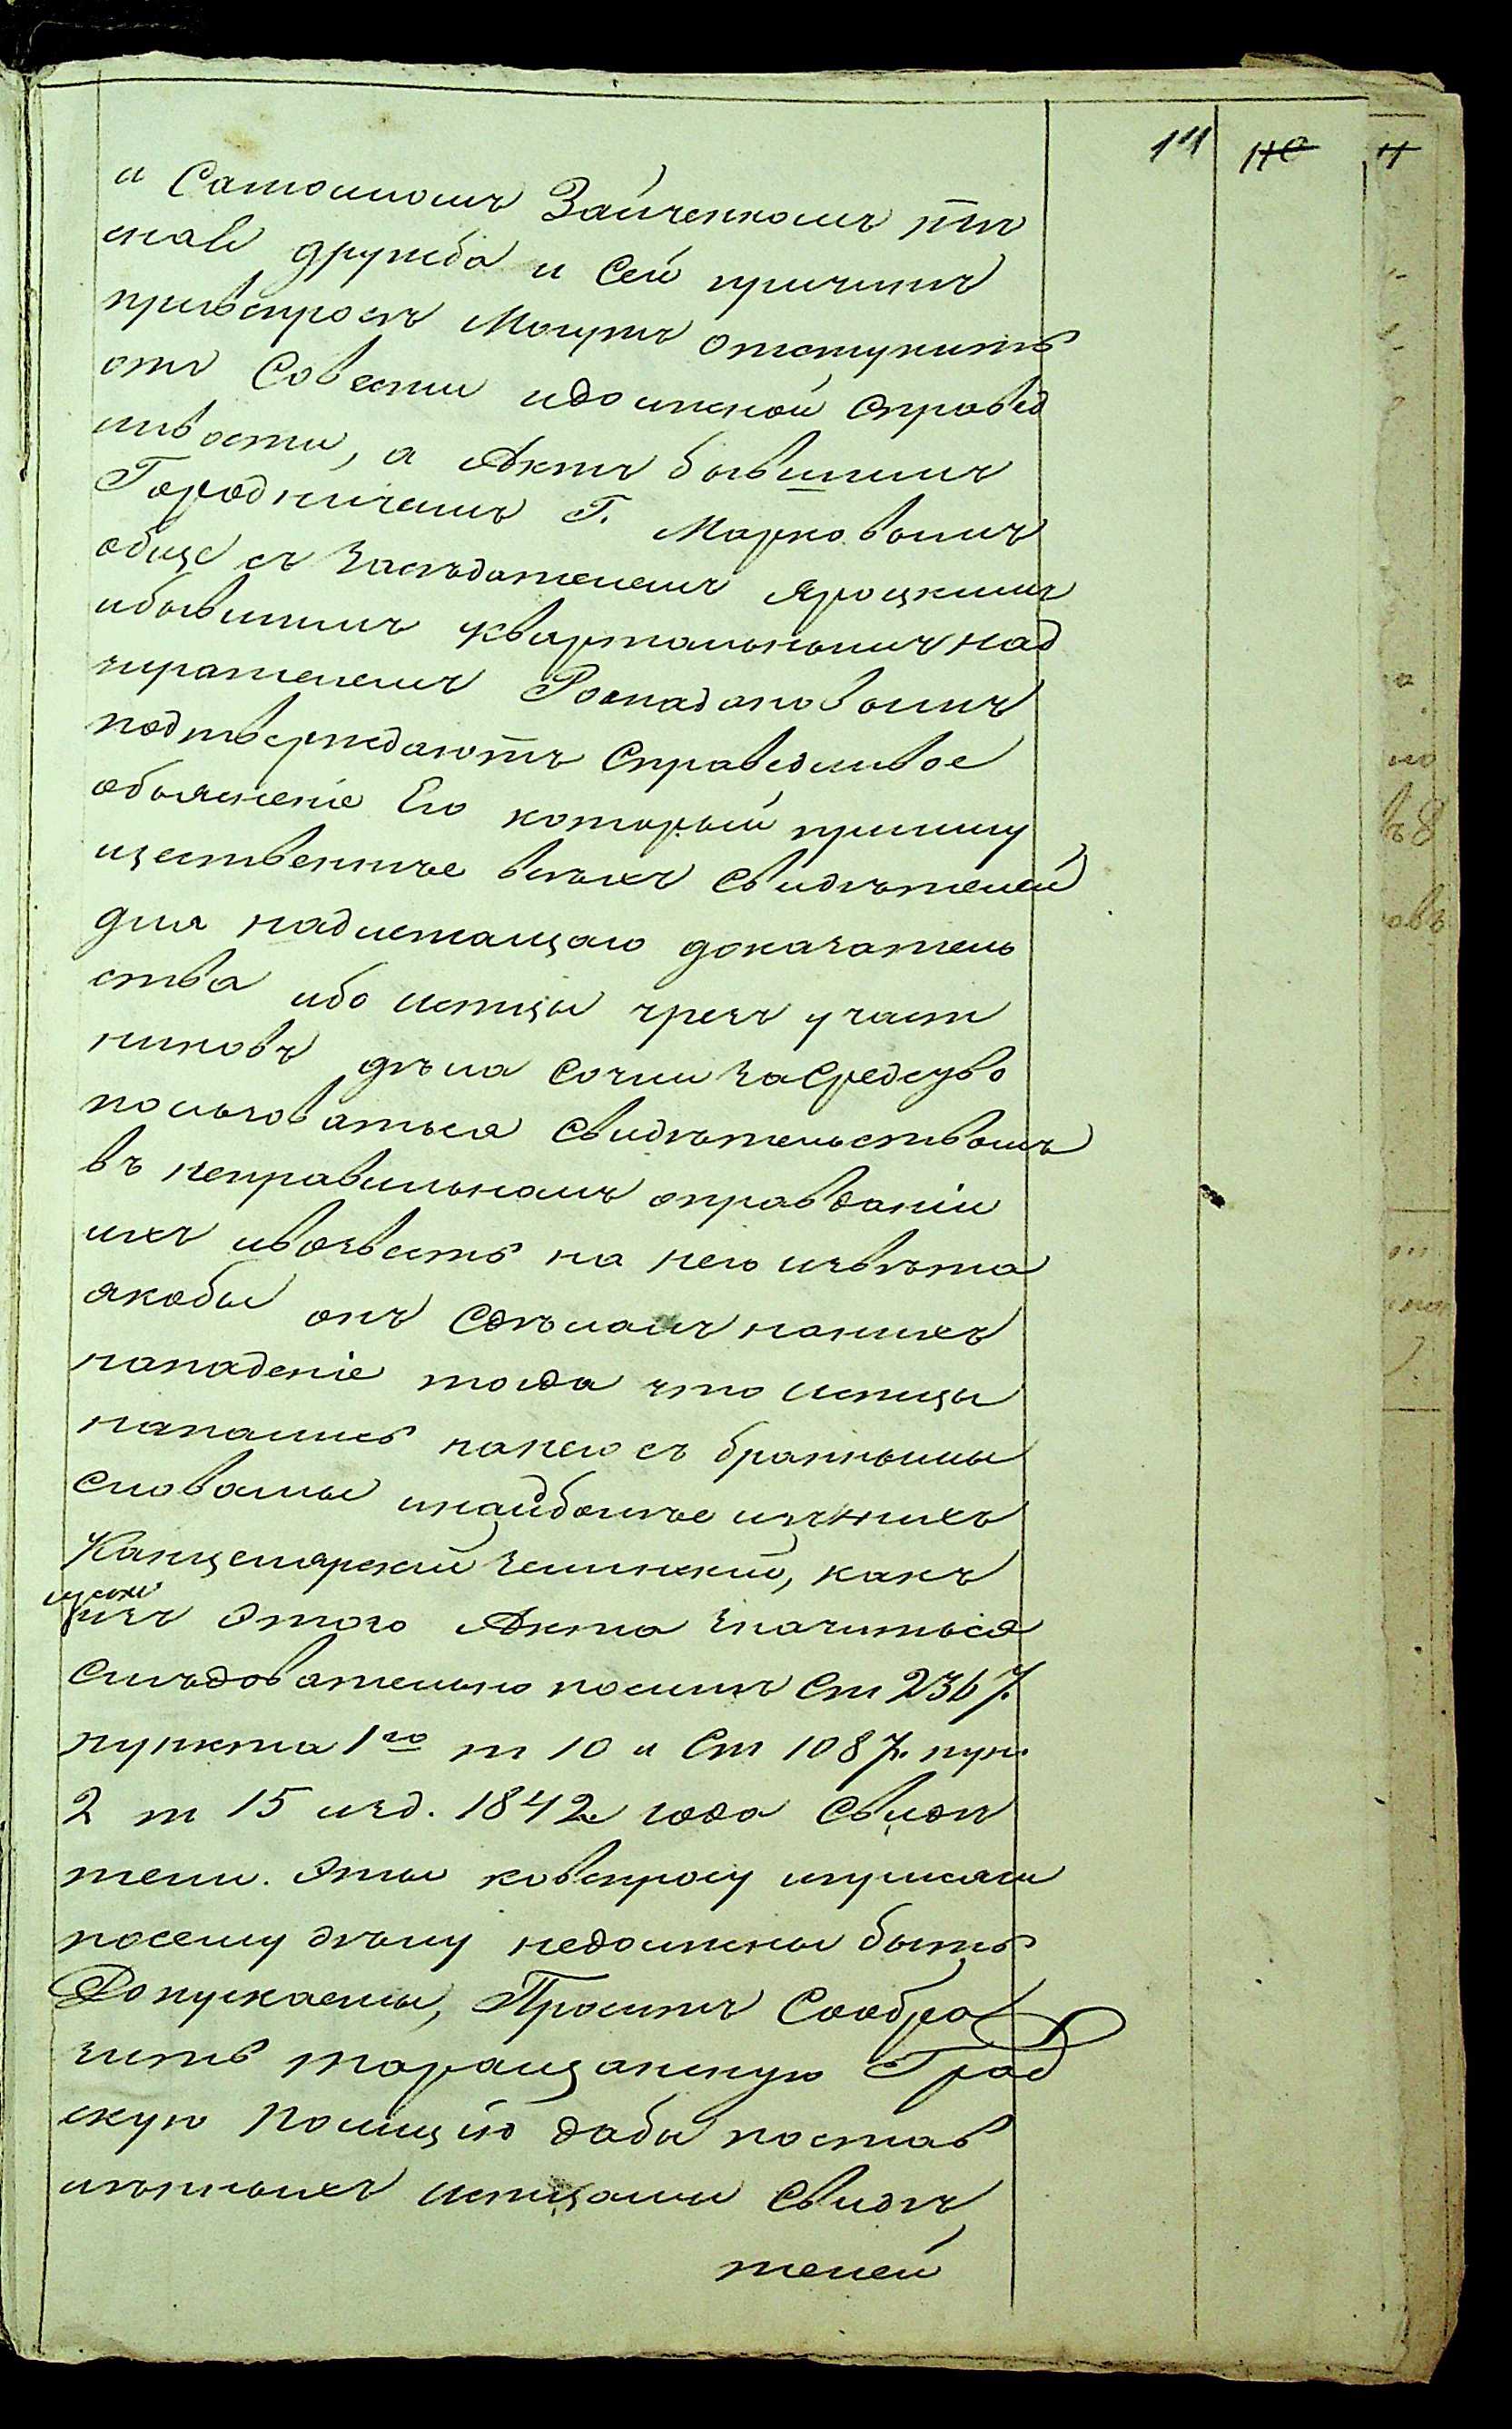 14 
и Самоиломъ Зайченкомъ тѣс
ная дружба и сей причинѣ
привспросѣ могутъ отступить
отъ Совести идолжной справед
ливости, а Актъ бывшимъ
Городничимъ Г. Марковымъ
обще съ Засѣдателемъ Яроцкимъ
ибывшимъ квартальнымъ над
зирателемъ Роспадановымъ
подтверждаютъ справедливое
объясненіе Его который прииму
щественнѣе всѣхъ свидѣтелей
для надлежащаго доказатель
ства ибо истцы чрезъ участ
никовъ дѣла сочли засредство
пользоваться свидѣтельствомъ
въ неправильномъ оправданіи
ихъ ивозвесть на него извѣта
якобы онъ сдѣлалъ нанихъ
нападеніе тогда что истцы
напались нанего съ бранными
словами инайболѣе изънихъ
Канцелярскій Зелинскій, какъ
изъ этого Акта значиться
слѣдовательно посимъ Ст 2367.
пункта 1го т 10 и Ст 1087. пун.
2 т 15 изд. 1842 года свидѣ
тели. Эты ковспросу
посему дѣлу недолжны быть
Допускаемы, Проситъ Сообра
зить таращанскую Град
скую Полицію дабы постав
лѣнныхъ истцами свидѣ
телей